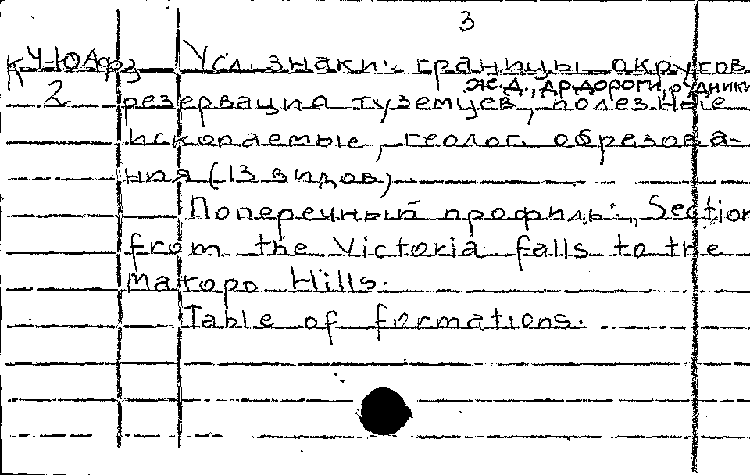 3
К У-ЮАфз Усл. знаки: границы округов
ж.д., др.дороги, рудники
2 резервация туземцев, полезные
ископаемые, геолог. образова-
ния (13 видов)
Поперечный профиль: "Section
from the Victoria falls to the
Matopo Hills.
Table of formations.